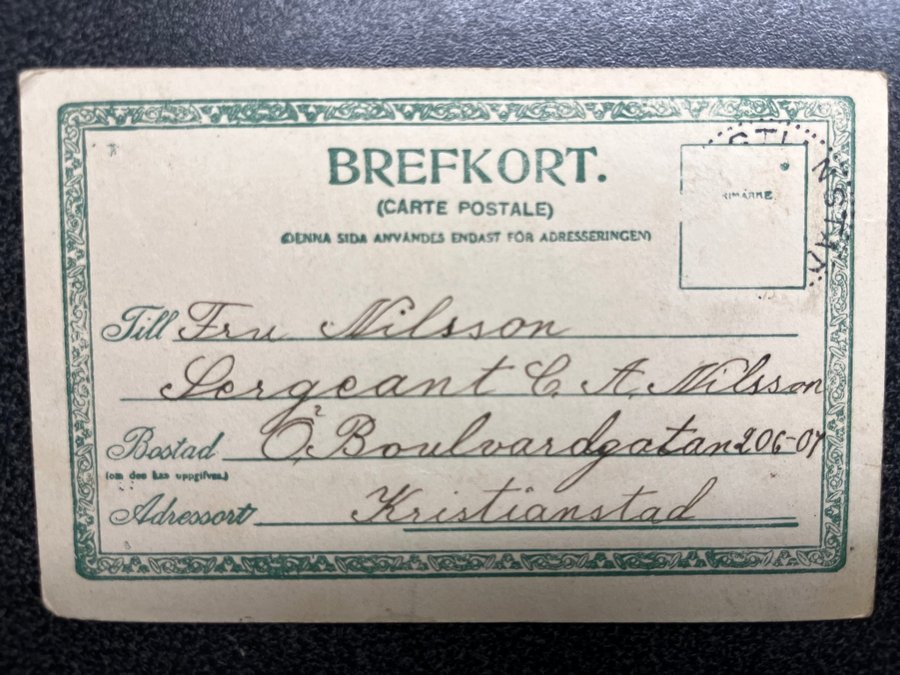 BREFKORT.
(CARTE POSTALE)
(DENNA SIDA ANVÄNDES ENDAST FÖR ADRESSERINGEN)
Till Fru Nilsson
Sergeant C. A. Nilsson
Bostad Ö. Boulvardgatan 206-07
(om den kan uppgifvas.)
Adressort Kristianstad